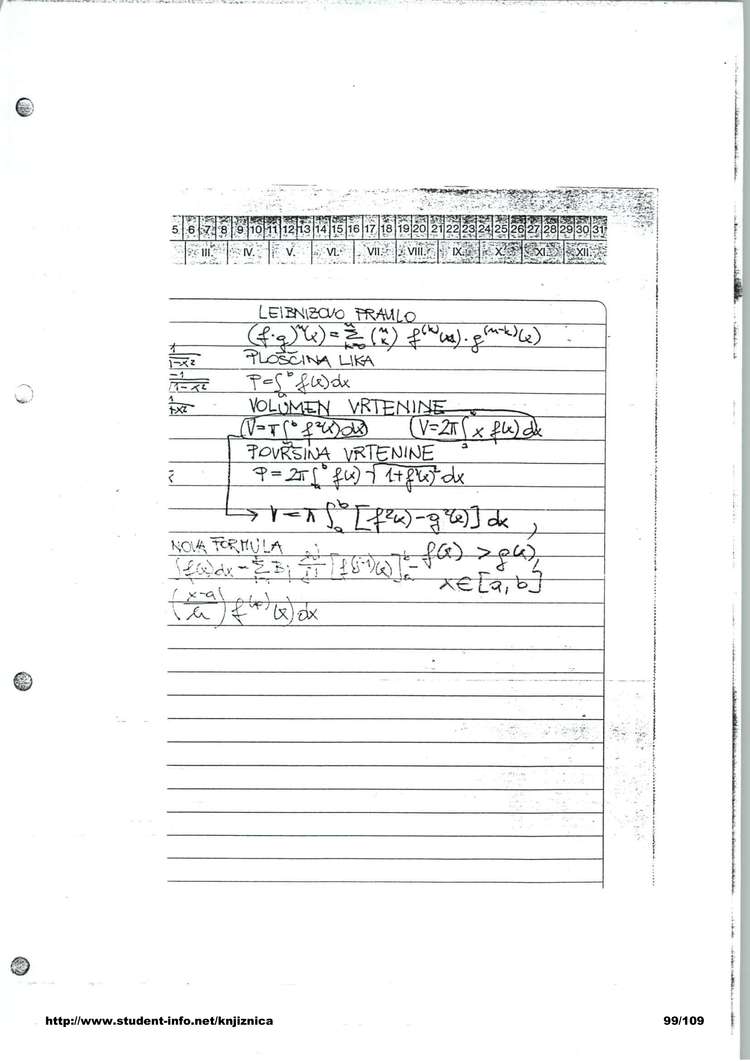 5 6 7 8 9 10 11 12 13 14 15 16 17 18 19 20 21 22 23 24 25 26 27 28 29 30 31
III. IV. V. VI. VII. VIII. IX. X. XI. XII.
LEIBNIZOVO PRAVILO
(f·g)ⁿ(x) = Σ (n k) f^(k)(x) · g^(n-k)(x)
PLOŠČINA LIKA
P = ∫ₐᵇ f(x) dx
VOLUMEN VRTENINE
V = π ∫ₐᵇ f²(x) dx V = 2π ∫ₐᵇ x f(x) dx
POVRŠINA VRTENINE
P = 2π ∫ₐᵇ f(x) √(1+f'(x)²) dx
V = π ∫ₐᵇ [f²(x) - g²(x)] dx ,
NOVA FORMULA
f(x) > g(x),
x ∈ [a, b]
f(x) dx
[f^(j-1)(x)]ₐᵇ -
(x-a) f (x) dx
http://www.student-info.net/knjiznica 99/109